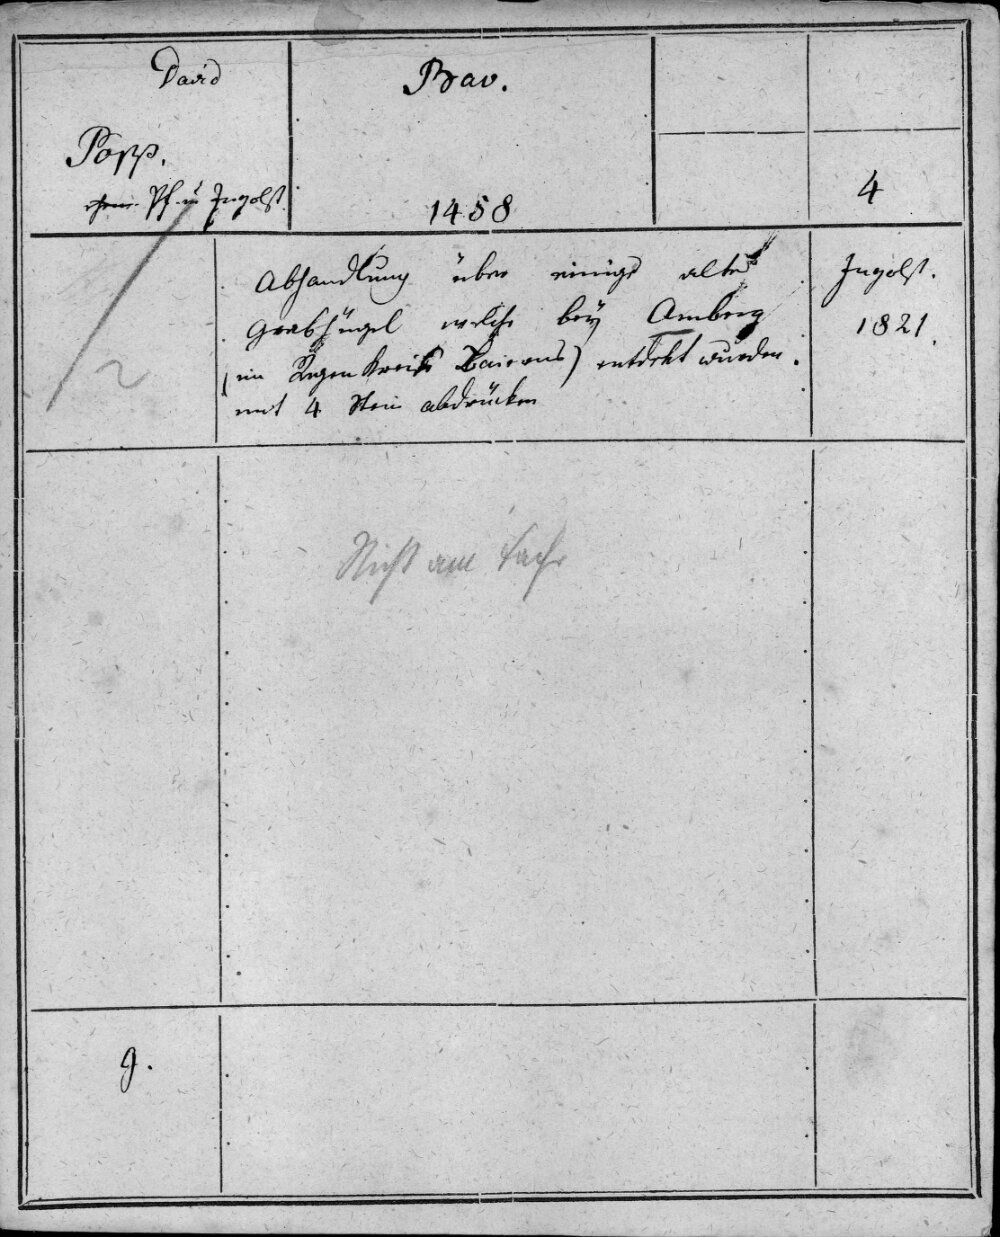 David
Popp.
Pf. in Ingolst.
Bav.
1458
4
Abhandlung über einige alte
Grabhügel welche bey Amberg
(im Regenkreiß Baierns) entdekt wurden.
mit 4 Stein abdrücken
Ingolst.
1821.
2
Nicht am Fach
g.